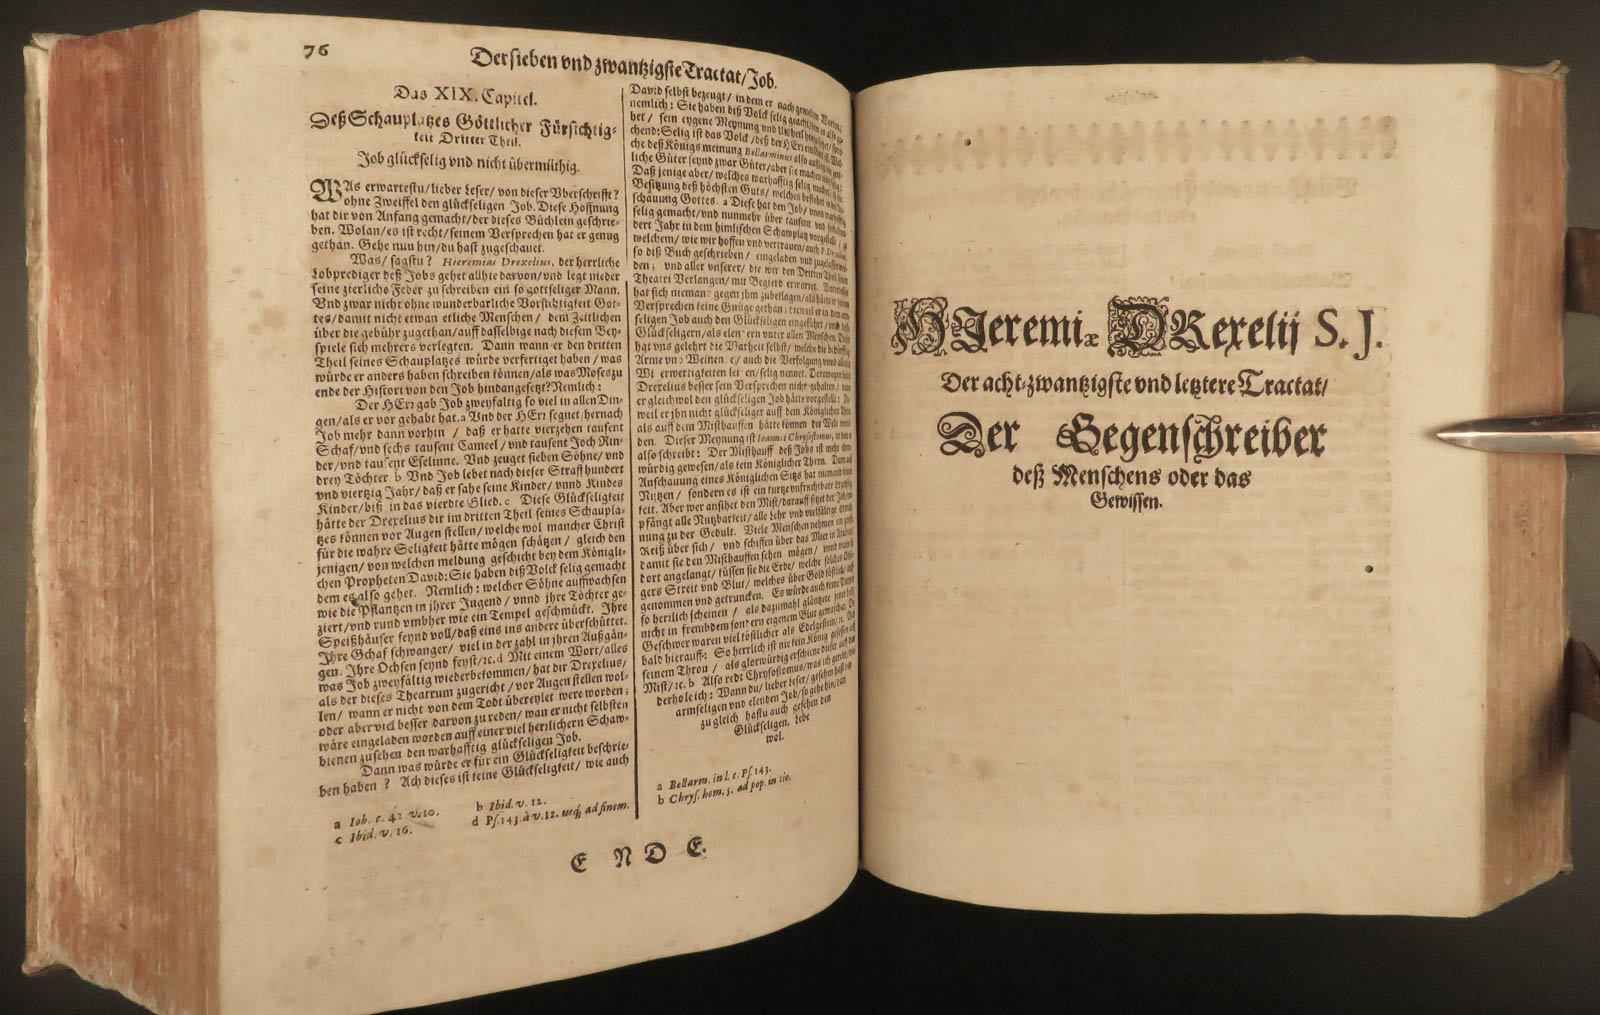 76
Der sieben vnd zwantzigste Tractat/ Job.
Das XIX. Capitel.
Deß Schauplatzes Göttlicher Fürsichtig-
keit Dritter Theil.
Job glückselig vnd nicht übermüthig.
WAs erwartestu/ lieber Leser/ von dieser Vberschrifft?
ohne Zweiffel den glückseligen Job. Diese Hoffnung
hat dir von Anfang gemacht/ der dieses Büchlein geschrie-
ben. Wolan/ es ist recht/ seinem Versprechen hat er genug
gethan. Gehe nun hin/ du hast zugeschauet.
Was/ sagstu? Hieremias Drexelius, der herrliche
Lobprediger deß Jobs gehet allhie darvon/ vnd legt nieder
seine zierliche Feder zu schreiben ein so gottseliger Mann.
Vnd zwar nicht ohne wunderbarliche Vorsichtigkeit Got-
tes/ damit nicht etwan etliche Menschen/ dem Zeitlichen
über die gebühr zugethan/ auff dasselbige nach diesem Bey-
spiele sich mehrers verlegten. Dann wann er den dritten
Theil seines Schauplatzes würde verfertiget haben/ was
würde er anders haben schreiben können/ als was Moses zu
ende der Histori von den Job hindangesetzt? Nemlich:
Der HErr gab Job zweyfaltig so viel in allen Din-
gen/ als er vor gehabt hat. a Vnd der HErr segnet hernach
Job mehr dann vorhin / daß er hatte vierzehen tausent
Schaf/ vnd sechs tausent Cameel/ vnd tausent Joch Rin-
der/ vnd tausent Eselinne. Vnd zeuget sieben Söhne/ vnd
drey Töchter b Vnd Job lebet nach dieser Straff hundert
vnd viertzig Jahr/ daß er sahe seine Kinder/ vnnd Kindes
Kinder/ biß in das vierdte Glied. c Diese Glückseligkeit
hätte der Drexelius dir im dritten Theil seines Schaupla-
tzes können vor Augen stellen/ welche wol mancher Christ
für die wahre Seligkeit hätte mögen schätzen/ gleich den
jenigen/ von welchen meldung geschicht bey dem Königli-
chen Propheten David: Sie haben diß Volck selig gemacht
dem es also gehet. Nemlich: welcher Söhne auffwachsen
wie die Pflantzen in jhrer Jugend/ vnnd jhre Töchter ge-
ziert/ vnd rund vmbher wie ein Tempel geschmückt. Ihre
Speißhäuser seynd voll/ daß eins ins andere überschüttet.
Ihre Schaf schwanger/ viel in der zahl in jhren Außgän-
gen. Ihre Ochsen seynd feyst/ ꝛc. d Mit einem Wort/ alles
was Job zweyfältig wiederbekommen/ hat dir Drexelius/
als der dieses Theatrum zugericht/ vor Augen stellen wol-
len/ wann er nicht von dem Todt übereylet were worden;
oder aber viel besser darvon zu reden/ wan er nicht selbsten
wäre eingeladen worden auff einer viel herrlichern Schaw-
bienen zusehen den warhafftig glückseligen Job.
Dann was würde er für ein Glückseligkeit beschrie-
ben haben? Ach dieses ist keine Glückseligkeit/ wie auch
a Iob. c. 42 v. 10.
b Ibid. v. 12.
c Ibid. v. 16.
d Ps. 143. à v. 12. usq; ad finem.
David selbst bezeugt/ in dem er nach gemelten Worten/
nemlich: Sie haben diß Volck selig geacht/
het/ sein eygene Meynung vnd Vrtheil
chend: Selig ist das Volck/ deß der HErr ein Gott ist. Wel-
che deß Königs meinung Bellarminus also
liche Güter seynd zwar Güter/ aber sie machen
Daß jenige aber/ welches warhafftig selig machet/ ist die
Besitzung deß höchsten Guts/ welches bestehet in
schäuung Gottes. a Diese hat den Job/ vnnd warhafftig
selig gemacht/ vnd nunmehr über tausent vnd
dert Jahr in dem himlischen Schauplatz vorgestellt/ zu
welchem/ wie wir hoffen vnd vertrauen/ auch P. Drexelius,
so diß Buch geschrieben/ eingeladen vnd zugelassen
den; vnd aller vnserer/ die wir den Dritten Theil seines
Theatri Verlangen/ mit Begierd erwartet.
hat sich niemand gegen jhm zubeklagen/ als hätte er seinem
Versprechen keine Gnüge gethan; dieweil er in dem armseligen Job auch den Glückseligen eingeführt/ vnd
Glückseligern/ als elenden vnter allen Menschen.
hat vns gelehrt die Warheit selbst/ welche die
Arme vnd Weinende/ auch die Verfolgung vnnd
Widerwertigkeiten leiden/ selig nennet. Derowegen
Drexelius besser sein Versprechen nicht gehalten/ wann
er gleich wol den glückseligen Job hätte vorgestellt:
weil er jhn nicht glückseliger auff dem Königlichen Thron
als auff dem Misthauffen hätte können der Welt
den. Dieser Meynung ist Ioannes Chrysostomus, in dem er
also schreibt: Der Misthauff deß Jobs ist mehr
würdig gewesen/ als kein Königlicher Thron. Dann auß
Anschauung eines Königlichen Sitz hat niemand
Nutzen/ sondern es ist ein kurtze vnfruchtbare
keit. Aber wer ansihet den Mist/ darauff sitzet der Job/
pfängt alle Nutzbarkeit/ alle Lehr vnd vielfältige
nung zu der Gedult. Viele Menschen nehmen ein große
Reiß über sich/ vnd schiffen über das Meer in Arabien/
damit sie den Misthauffen sehen mögen/ vnnd wann sie
dort angelangt/ küssen sie die Erde/ welche solches
gers Streit vnd Blut/ welches über Gold köstlich/ auff
genommen vnd getruncken. Es würde auch keine Purpur
so herrlich scheinen / als dazumahl gläntzete jener
nicht in frembdem sondern eigenem Blut gewaschen. Die
Geschwer waren viel köstlicher als Edelgestein/ ꝛc. Vnd
bald hierauff: So herrlich ist nie kein König gesessen auff
seinem Thron / als glorwürdig erschiene dieser auff dem
Mist/ ꝛc. b Also redt Chrysostomus/ was ich
derhole ich: Wann du/ lieber Leser/ gesehen hast den
armseligen vnd elenden Job/ so gehe hin/ dann
zu gleich hastu auch gesehen den
Glückseligen. Lebe
wol.
a Bellarm. in l. c. Ps. 143.
b Chrys. hom. 5. ad pop. in tio.
E N D E.
HJeremiæ DRexelij S. J.
Der acht-zwantzigste vnd letztere Tractat/
Der Gegenschreiber
deß Menschens oder das
Gewissen.